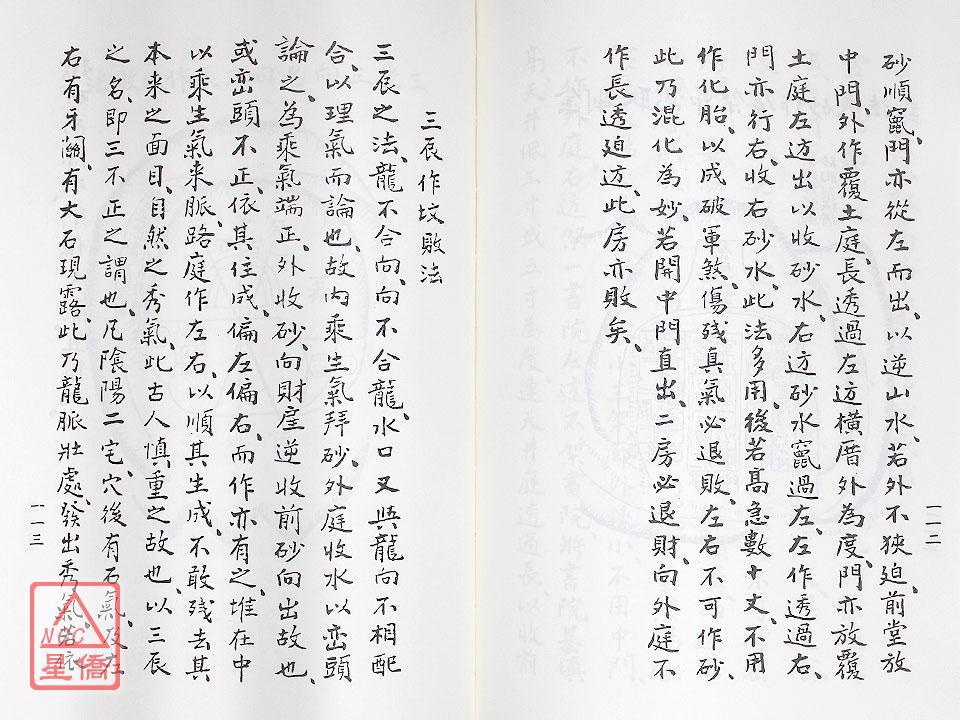 砂順竄、門亦從左而出、以逆山水、若外不狹廹、前堂放
中門、外作覆土庭、長透過左边橫厝外為度、門亦放覆
土庭左边出以收砂水、右边砂水竄過左、左作透過右、
門亦行右、收右砂水、此法多用、後若高急數十丈、不用
作化胎、以成破軍煞、傷殘真氣必退敗、左右不可作砂、
此乃混化為妙、若開中門直出、二房必退財、向外庭不
作長透廹边、此房亦敗矣、
一一二
三辰作坟敗法
三辰之法、龍不合向、向不合龍、水口又與龍向不相配
合、以理氣而論也、故內乘生氣拜砂、外庭收水以巒頭
論之、為乘氣端正、外收砂、向財產逆收前砂向出故也、
或巒頭不正、依其住成、偏左偏右、而作亦有之、堆在中
以乘生氣来脈、路庭作左右、以順其生成、不敢殘去其
本来之面目、自然之秀氣、此古人慎重之故也、以三辰
之名、即三不正之謂也、凡陰陽二宅、穴後有石氣、及左
右有牙關、有大石現露、此乃龍脈壯處、發出秀氣、若依
一一三
NCC
星僑